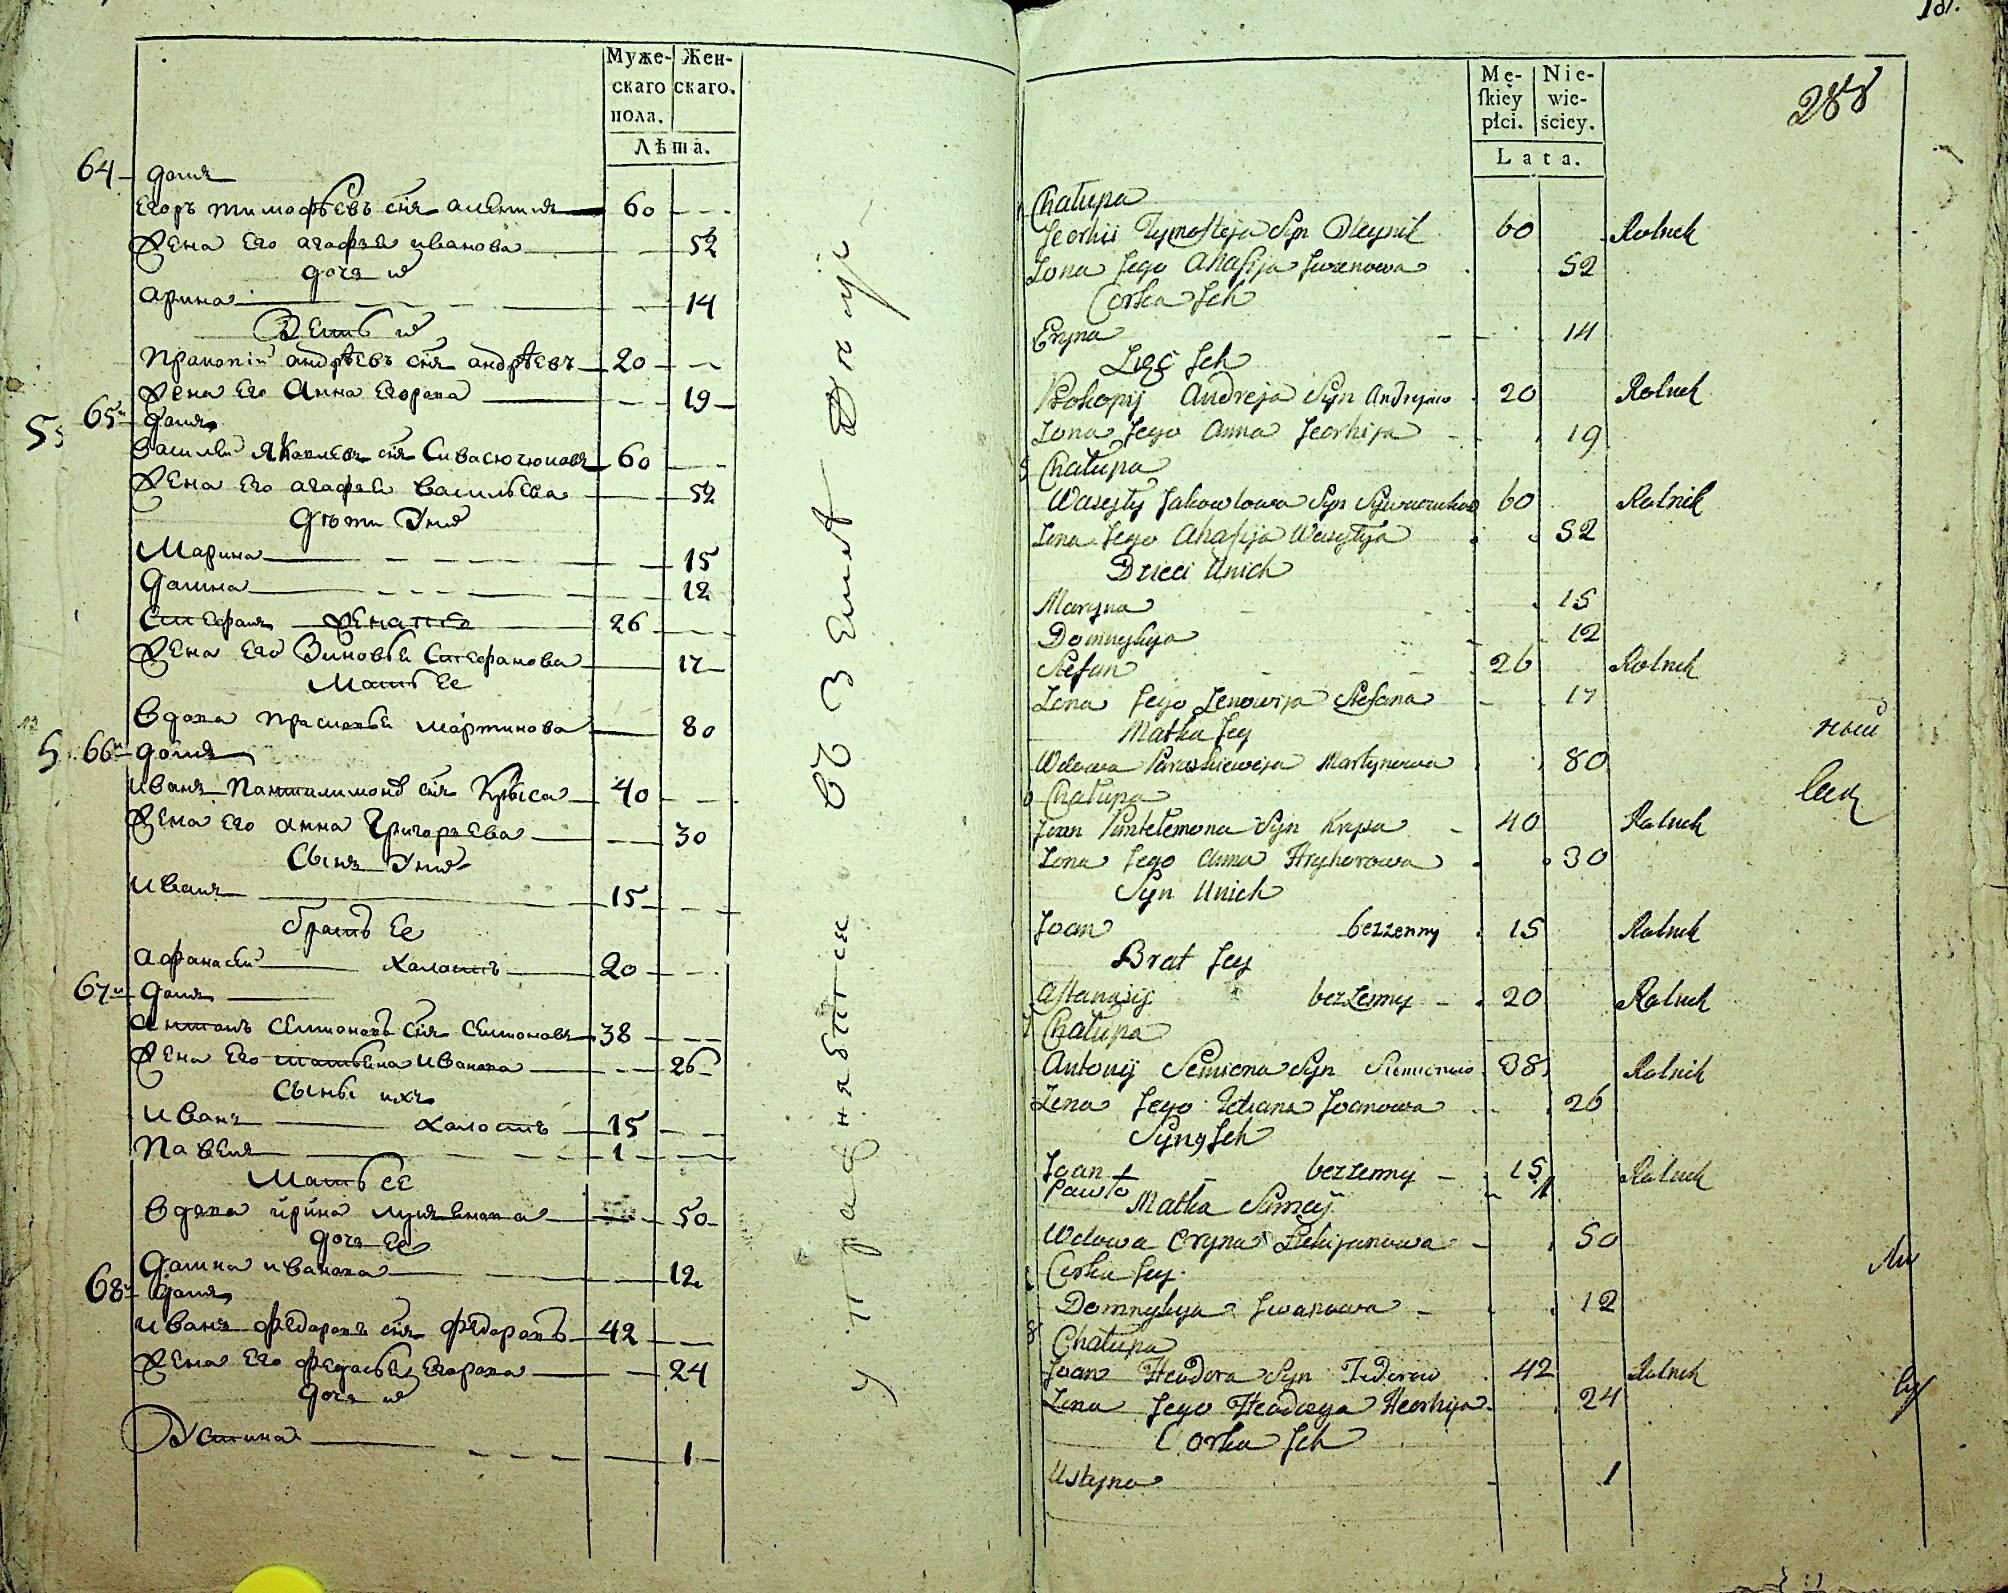 Муже-
скаго
пола.
Жен-
скаго.
Лѣта.
64 домъ
Егоръ тимофѣевъ снъ 60
жена его агафья иванова 52
дочь их
арина 14
Зеть их
Пракопій андрѣевъ снъ андрѣевъ 20
жена его Анна егорова 19
65й домъ
василей Яковлевъ снъ 60
жена его агафья васильева 52
дѣти у них
Марина 15
домна 12
Стефанъ женатъ 26
жена его Зиновья Стефанова 17
Мать ее
вдова прасковья мартинова 80
66й домъ
иванъ Пантилимоновъ снъ Крыса 40
жена его анна Григорьева 30
Сынъ у них
иванъ 15
братъ ее
афанасей холостъ 20
67й домъ
антонъ семионовъ снъ семионовъ 38
жена его татьяна иванова 26
Сыны ихъ
иванъ холостъ 15
Павелъ 1
Мать ее
вдова ирина 50
дочь ее
домна иванова 12
68й домъ
иванъ федоровъ снъ федоровъ 42
жена его федосья егорова 24
дочь их
Устина 1
упражняются въ землѣ
181.
288
Mę-
ſkiéy
płci.
Nie-
wie-
ściey.
Lata.
Chałupa
Jeorhii Tymofteja Syn Oleynik 60 Rolnik
Żona Jego Ahafija Jwanowa 52
Corka Ich
Eryna 14
Zięć Ich
Prokopij Andreja Syn Andrejew 20 Rolnik
Żona Jego Anna Jeorhija 19
5 Chałupa
Wasyly Jakowlowa Syn 60 Rolnik
Żona Jego Ahafija Wasylija 52
Dzieci Unich
Maryna 15
Domnykija 12
Stefan 26 Rolnik
Żona Jego Zenowija Stefana 17
Matka Jey
Wdowa Paraskiewija Martynowa 80
6 Chałupa
Joan Pantelemona Syn Krysa 40 Rolnik
Żona Jego Anna Hryhorowa 30
Syn Unich
Joan bezżenny 15 Rolnik
Brat Jey
Aftanasij bezżenny 20 Rolnik
7 Chałupa
Antonij Semiona Syn Siemionow 38 Rolnik
Żona Jego Tetiana Joanowa 26
Syny Ich
Joan bezżenny 15 Rolnik
Pawło 1
Matka
Wdowa Eryna 50
Corka Jey
Domnykija Jwanowa 12
8 Chałupa
Joan Theodora Syn Fedorow 42 Rolnik
Żona Jego Theodosya Heorhija 24
Corka Ich
Ustyna 1